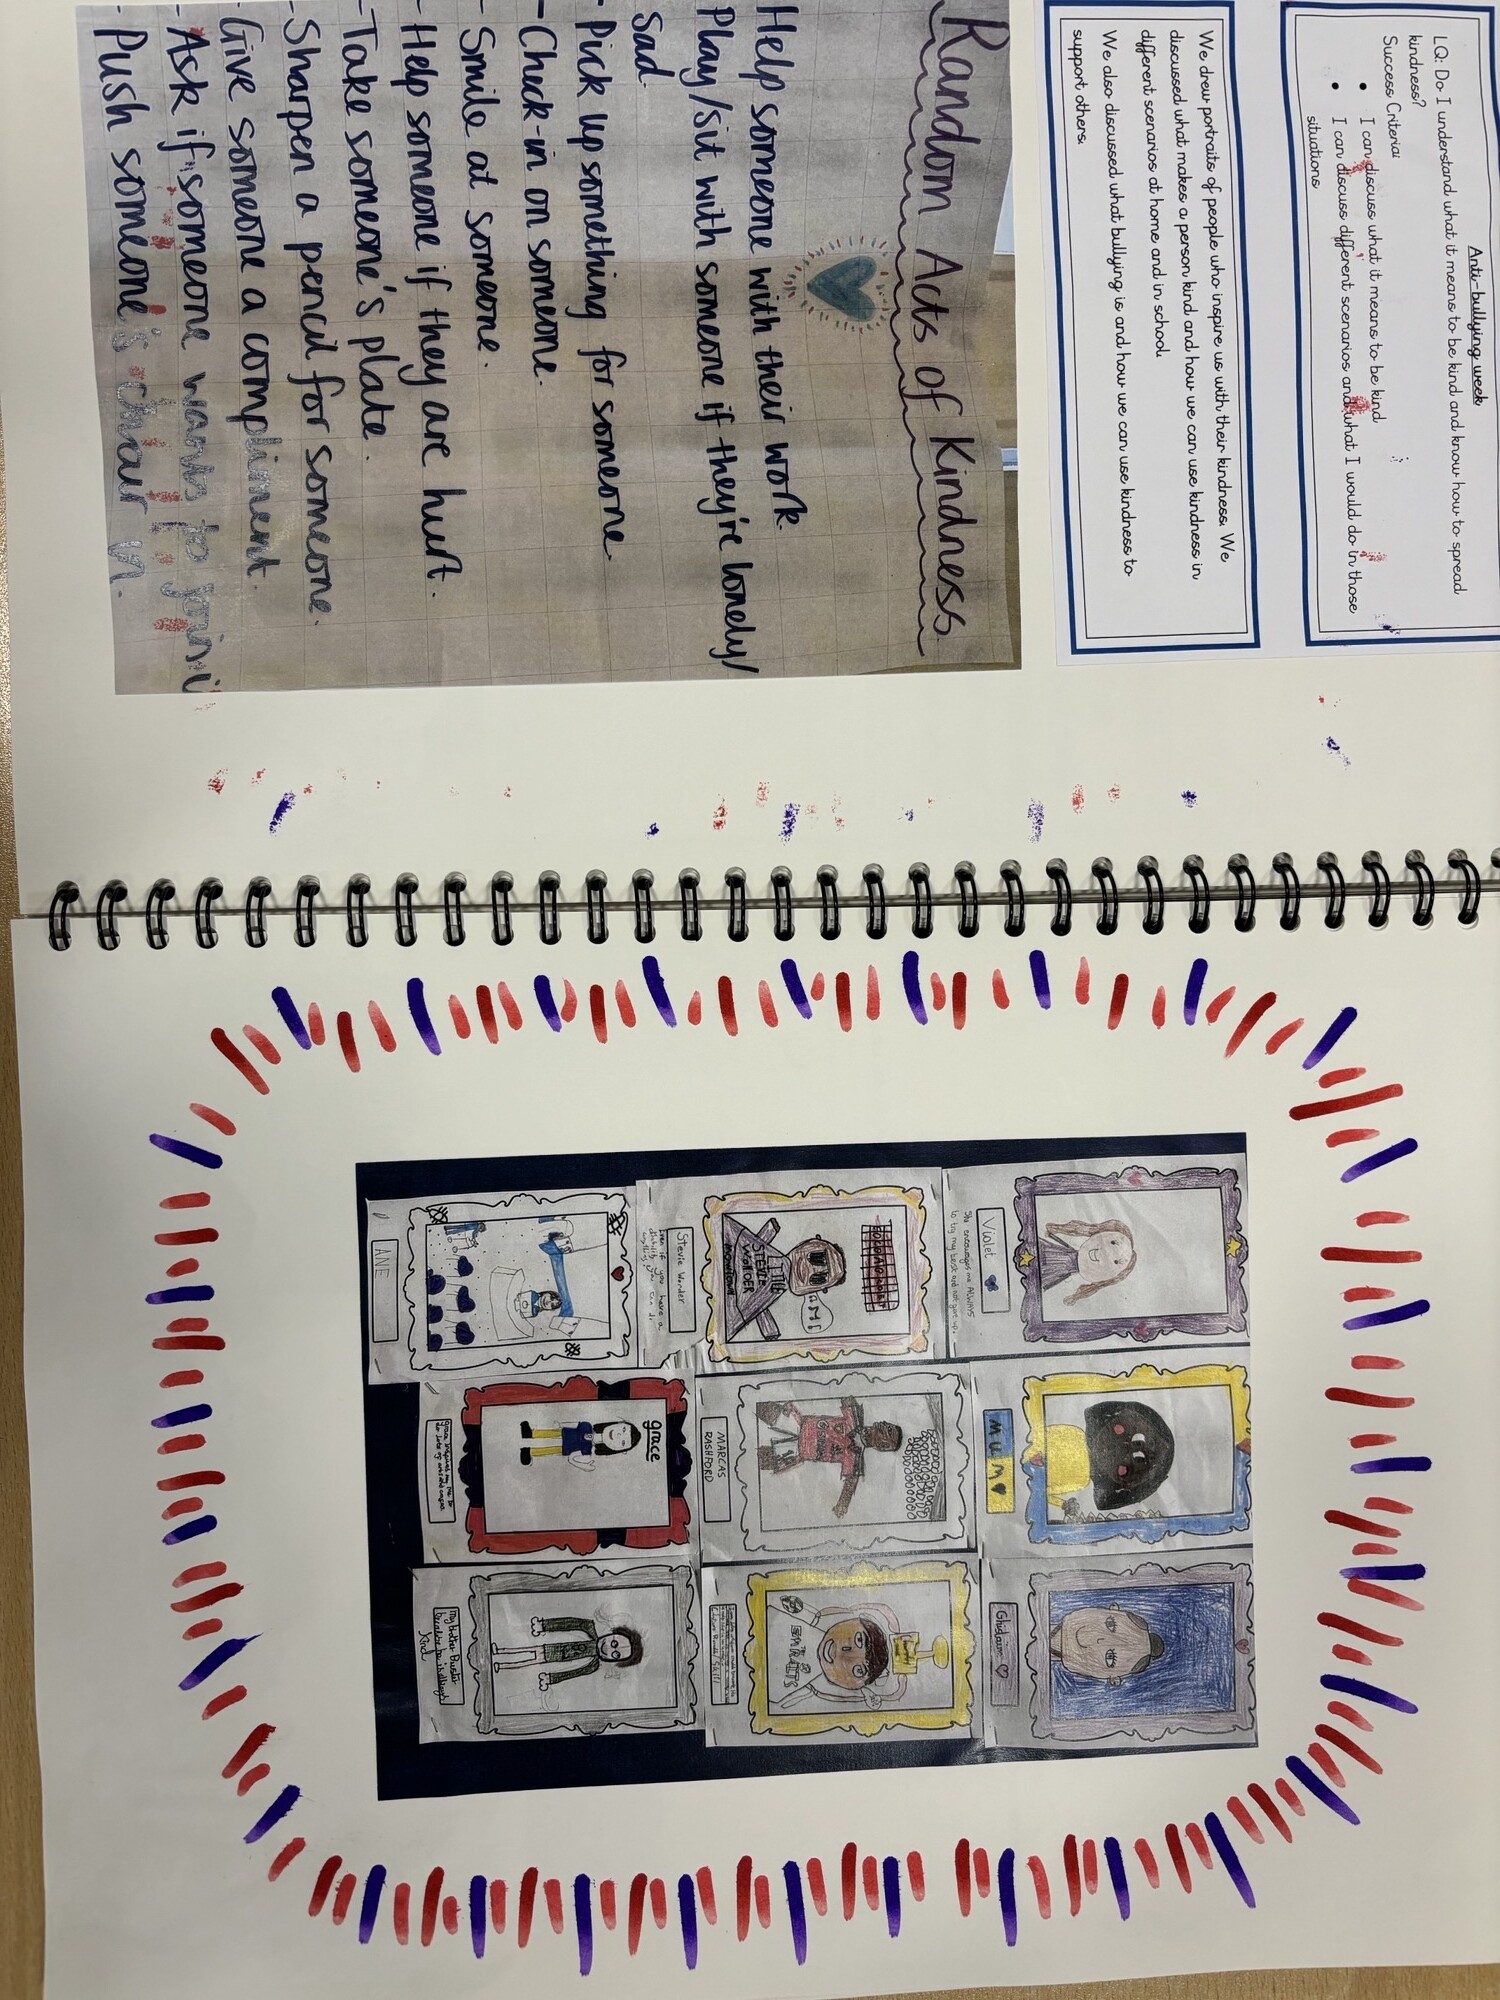 Anti-bullying week
LQ: Do I understand what it means to be kind and know how to spread
kindness?
Success Criteria:
• I can discuss what it means to be kind
• I can discuss different scenarios and what I would do in those
situations.
We drew portraits of people who inspire us with their kindness. We
discussed what makes a person kind and how we can use kindness in
different scenarios at home and in school.
We also discussed what bullying is and how we can use kindness to
support others.
Random Acts of Kindness
Help someone with their work.
Play/sit with someone if they're lonely/
Sad.
- Pick up something for someone
- Check-in on someone.
- Smile at someone.
- Help someone if they are hurt.
- Take someone's plate.
- Sharpen a pencil for someone.
- Give someone a compliment.
- Ask if someone wants to join i
- Push someone's chair in.
Violet
She encourages me ALWAYS
to try my best and not give up.
MUM
Ghislaine
LITTLE
STEVIE
WONDER
MOWTOWN
Stevie Wonder
Even if you have a
disability you can do
anything
MARCAS
RASHFORD
ANE
grace
grace inspires my me to
my brother Buster
because he is allways
Kind